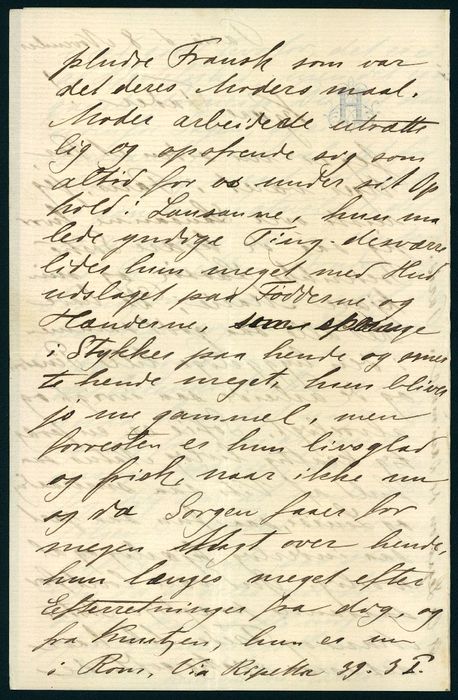 pludre Fransk som var
det deres Moders maal.
H
Moder arbeidede utrætte
lig og opofrende sig som
altid for os under sit Op
hold i Lausanne, hun ma
lede yndige Ting. desværre
lider hun meget med Hud
udslaget paa Födderne og
Hænderne, som spænge
i Stykker paa hende og smer
te hende meget, hun bliver
jo nu gammel, men
forresten er hun livsglad
og frisk, naar ikke nu
og da Sorgen faaer for
megen Magt over hende,
hun længes meget efter
Efterretninger fra dig, og
fra Knutzen, hun er nu
i Rom, Via Ripetta 39. 3 I.